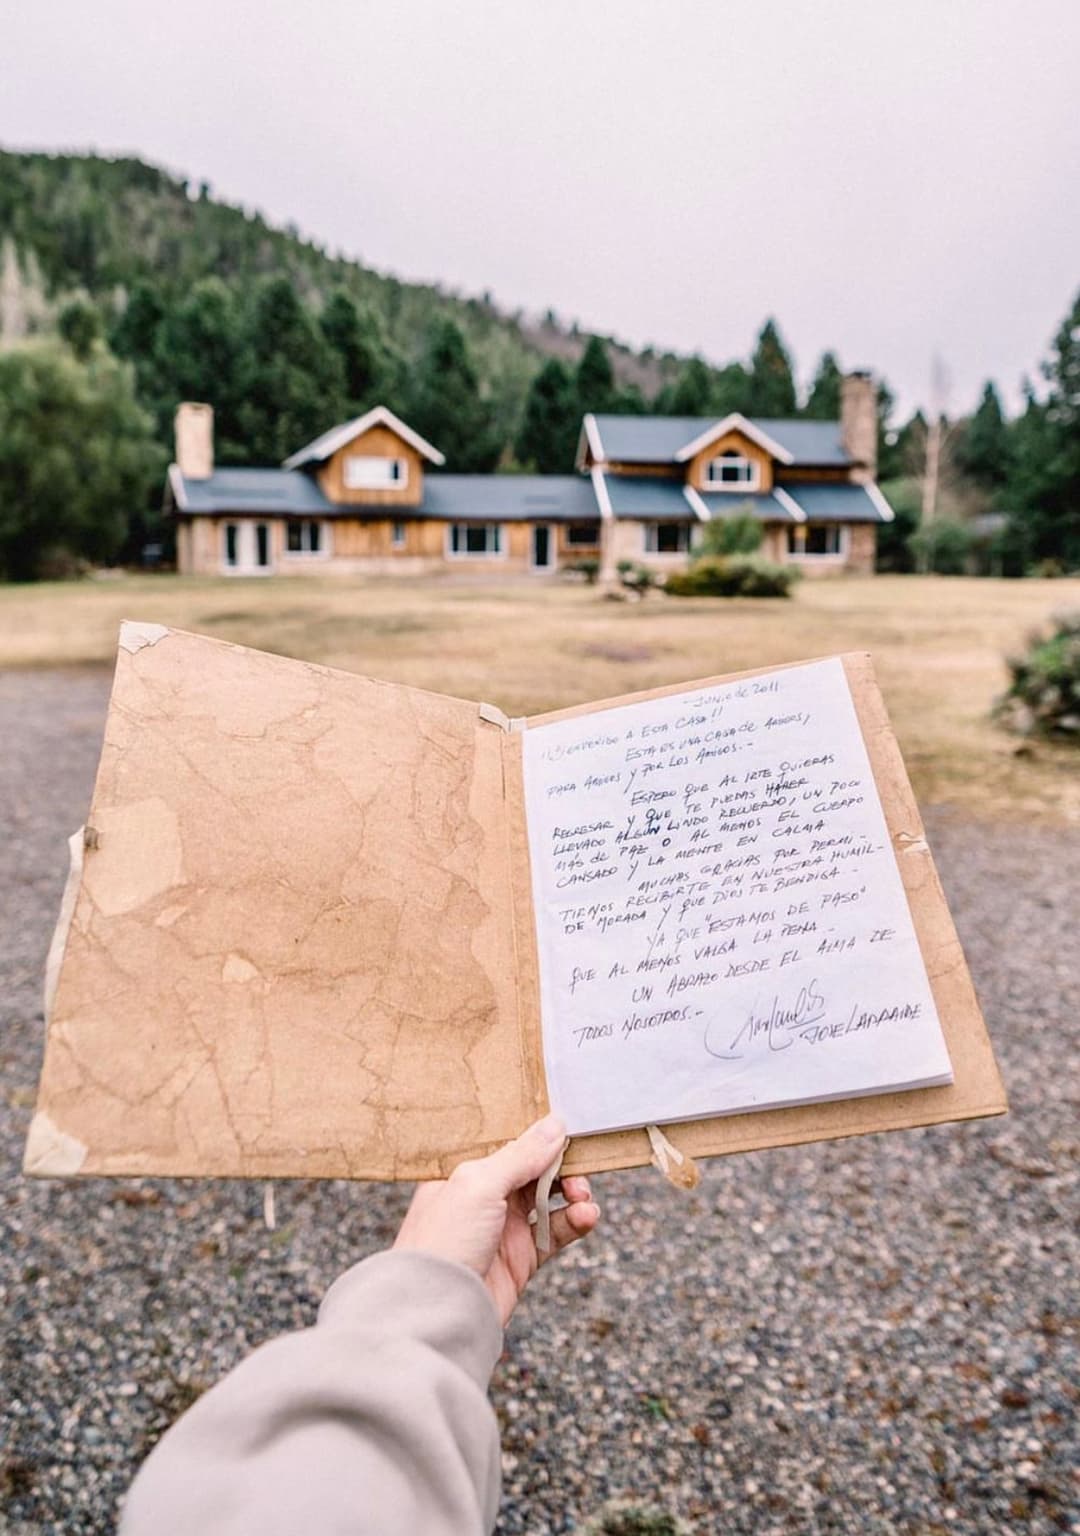 - Junio de 2011
¡¡Bienvenido a Esta Casa!!
Esta es una casa de Amigos,
Para Amigos y por los Amigos.-
Espero que al irte quieras
regresar y que te puedas haber
llevado algún lindo recuerdo, un poco
más de paz o al menos el cuerpo
cansado y la mente en calma
Muchas gracias por permi-
tirnos recibirte en nuestra humil-
de morada y que Dios te bendiga.-
Ya que "estamos de paso"
que al menos valga la pena.-
Un abrazo desde el alma de
todos nosotros.-